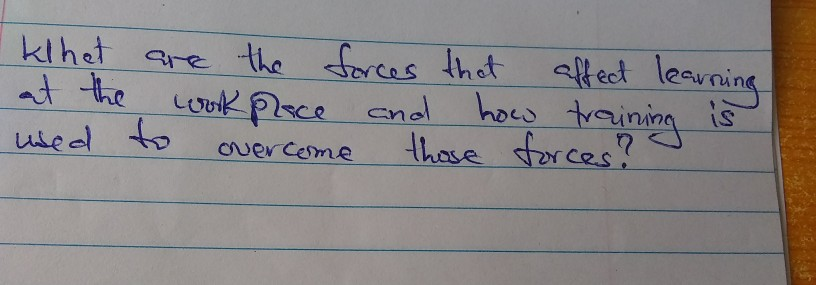 What are the forces that affect learning
at the work place and how training is
used to overcome those forces?